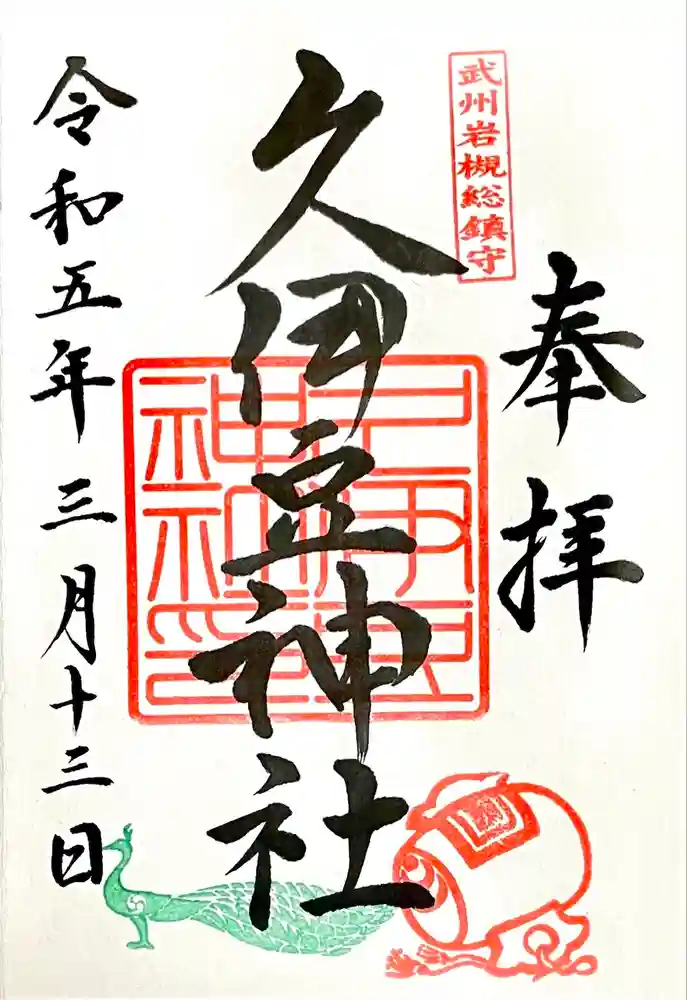 武州岩槻総鎮守
奉拝
久伊豆神社
令和五年三月十三日